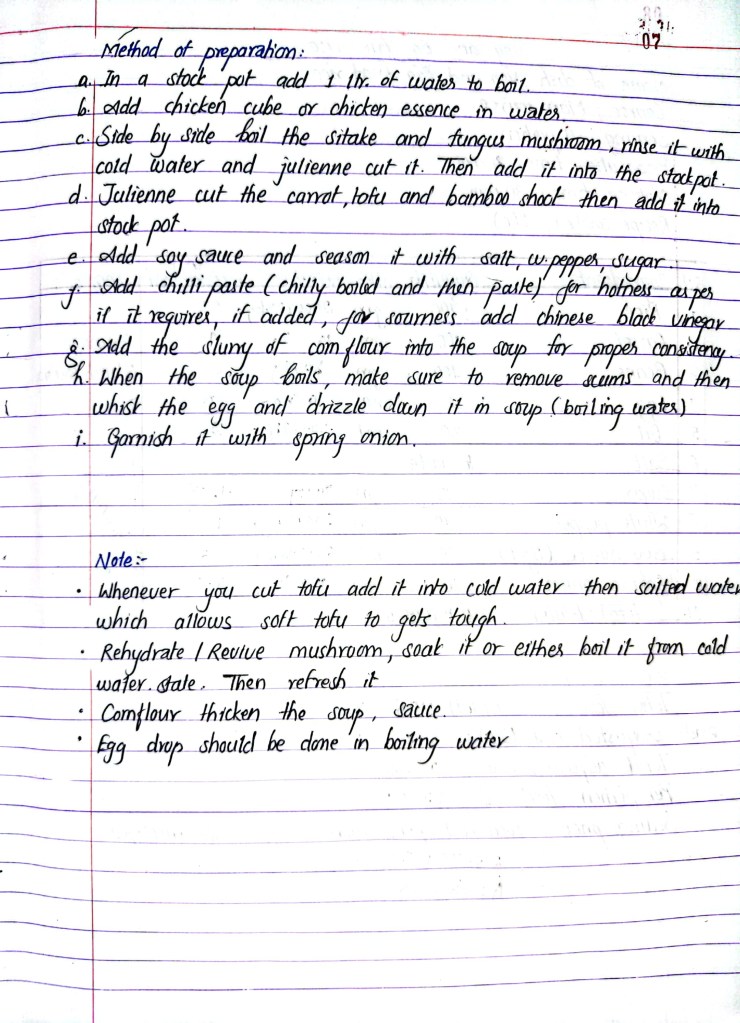 07
Method of preparation:
a. In a stock pot add 1 ltr. of water to boil.
b. Add chicken cube or chicken essence in water.
c. Side by side boil the sitake and fungus mushroom, rinse it with
cold water and julienne cut it. Then add it into the stockpot.
d. Julienne cut the carrot, tofu and bamboo shoot then add it into
stock pot.
e. Add soy sauce and season it with salt, w.pepper, sugar.
f. Add chilli paste (chilly boiled and then paste) for hotness as per
if it requires, if added, for sourness add chinese black vinegar
g. Add the slurry of corn flour into the soup for proper consistency.
h. When the soup boils, make sure to remove scums and then
whisk the egg and drizzle down it in soup (boiling water)
i. Garnish it with spring onion.
Note:-
• Whenever you cut tofu add it into cold water then salted water
which allows soft tofu to gets tough.
• Rehydrate / Revive mushroom, soak it or either boil it from cold
water. state. Then refresh it
• Cornflour thicken the soup, sauce.
• Egg drop should be done in boiling water